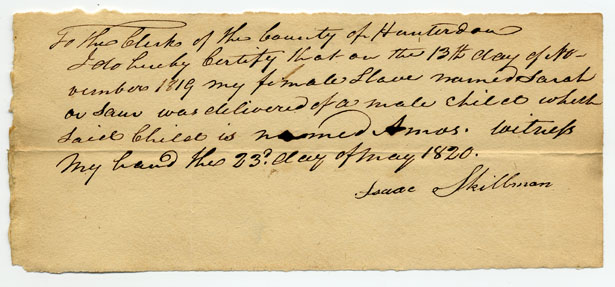 To the Clerk of the County of Hunterdon
I do hereby Certify that on the 13th day of No-
vember 1819 my female Slave named Sarah
or Saur was delivered of a male Child which
Said Child is named Amos. witness
my hand the 23d. day of may 1820.
Isaac Skillman